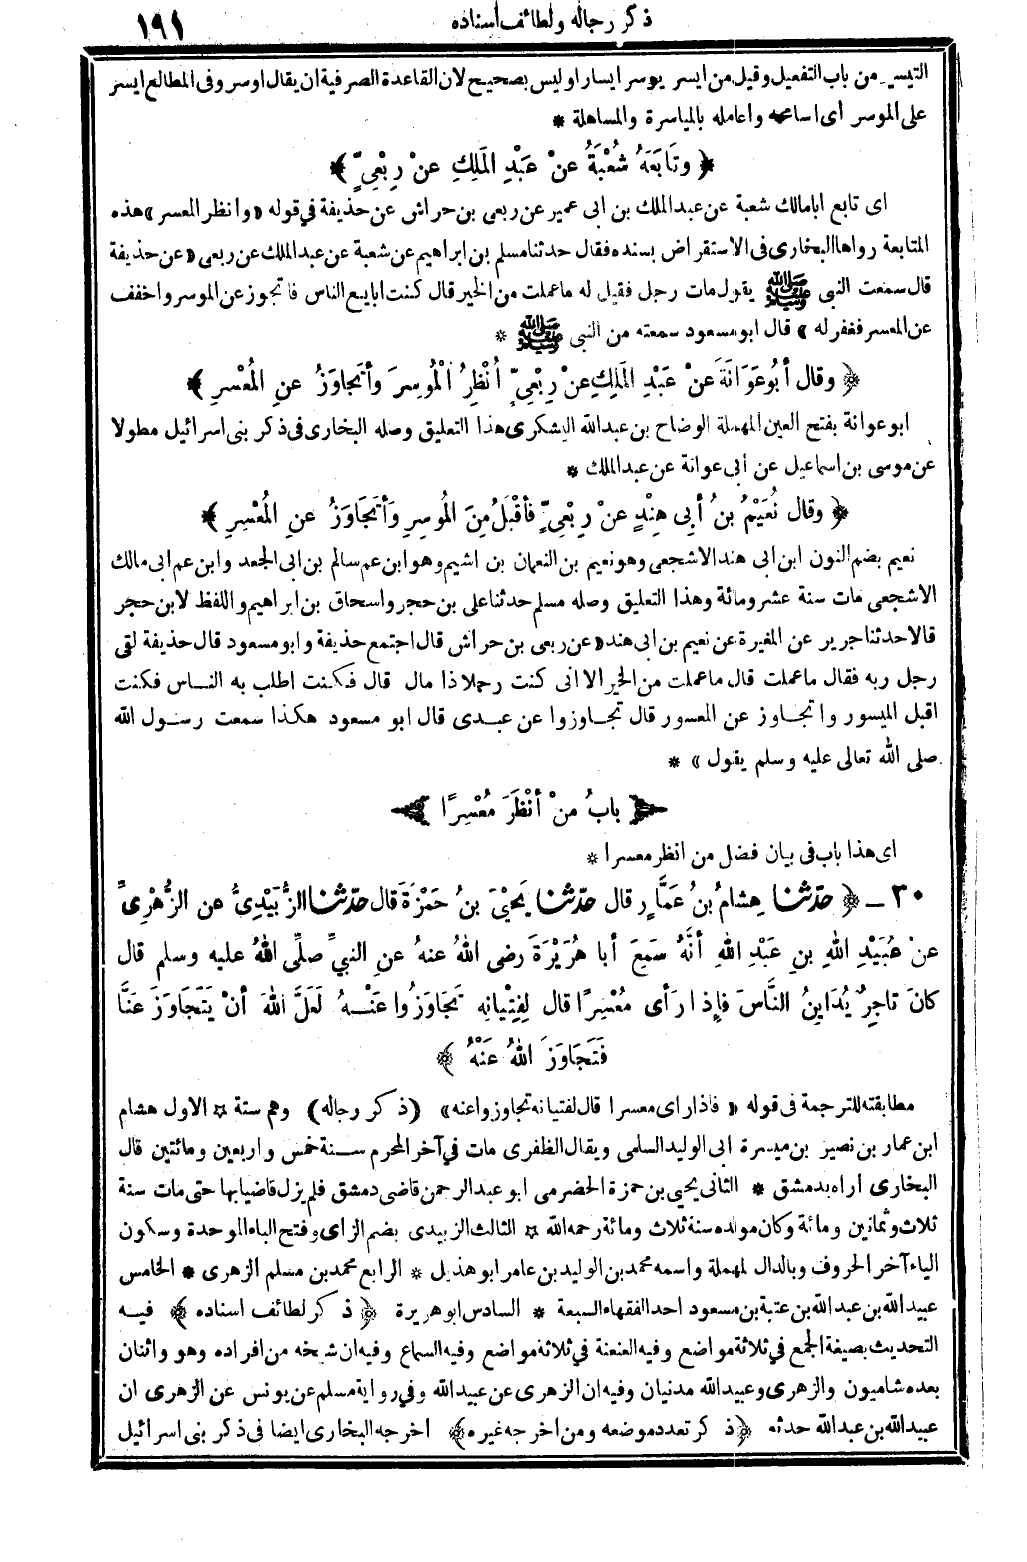 ذكر رجاله ولطائف اسناده
١٩١
التيسير من باب التفعيل وقيل من ايسر يوسر ايسارا وليس بصحيح لان القاعدة الصرفية ان يقال اوسر وفى المطالع ايسر
على الموسر أى اسامحه واعامله بالمياسرة والمساهلة *
﴿ وتَابَعَهُ شُعْبَةُ عنْ عَبْدِ المَلِكِ عنْ رِبْعِيٍّ ﴾
اى تابع ابا مالك شعبة عن عبد الملك بن ابى عمير عن ربعى بن حراش عن حذيفة في قوله «وانظر المعسر» هذه
المتابعة رواها البخارى فى الاستقراض بسنده فقال حدثنا مسلم بن ابراهيم عن شعبة عن عبد الملك عن ربعى «عن حذيفة
قال سمعت النبى ﷺ يقول مات رجل فقيل له ما عملت من الخير قال كنت ابايع الناس فاتجوز عن الموسر واخفف
عن المعسر فغفر له » قال ابو مسعود سمعته من النبى ﷺ *
﴿ وقال أبُو عَوَانَةَ عنْ عَبْدِ المَلِكِ عنْ رِبْعِيٍّ أُنْظِرُ الْمُوسِرَ وأتَجاوَزُ عنِ المُعْسِرِ ﴾
ابو عوانة بفتح العين المهملة الوضاح بن عبد الله اليشكرى هذا التعليق وصله البخارى فى ذكر بنى اسرائيل مطولا
عن موسى بن اسماعيل عن أبى عوانة عن عبد الملك *
﴿ وقال نُعَيْمُ بنُ أبِي هِنْدٍ عنْ رِبْعِيٍّ فأقْبَلُ مِنَ المُوسِرِ وَأتَجَاوَزُ عنِ المُعْسِرِ ﴾
نعيم بضم النون ابن ابى هند الاشجعى وهو نعيم بن النعمان بن اشيم وهو ابن عم سالم بن ابى الجعد وابن عم ابى مالك
الاشجعى مات سنة عشر ومائة وهذا التعليق وصله مسلم حدثنا على بن حجر واسحاق بن ابراهيم واللفظ لابن حجر
قالا حدثنا جرير عن المغيرة عن نعيم بن ابى هند «عن ربعى بن حراش قال اجتمع حذيفة وابو مسعود قال حذيفة لقى
رجل ربه فقال ما عملت قال ما عملت من الخير الا انى كنت رجلا ذا مال قال فكنت اطلب به الناس فكنت
اقبل الميسور واتجاوز عن المعسور قال تجاوزوا عن عبدى قال ابو مسعود هكذا سمعت رسول الله
صلى الله تعالى عليه وسلم يقول » *
﴿ بابُ منْ أنْظَرَ مُعْسِرًا ﴾
اى هذا باب فى بيان فضل من انظر معسرا *
٣٠ ـ ﴿ حدّثنا هِشامُ بنُ عَمَّارٍ قال حدّثنا يَحْيَى بنُ حَمْزَةَ قال حدّثنا الزُّبَيْدِىُّ عنِ الزُّهْرِىِّ
عنْ عُبَيْدِ اللهِ بنِ عَبْدِ اللهِ أنَّهُ سَمِعَ أبا هُرَيْرَةَ رضى اللهُ عنهُ عنِ النبيِّ صلَّى اللهُ عليه وسلم قال
كانَ تاجِرٌ يُدَايِنُ النَّاسَ فإذا رَأى مُعْسِرًا قال لِفِتْيانِهِ تَجاوَزُوا عنْهُ لَعَلَّ اللهَ أنْ يَتَجَاوَزَ عَنَّا
فَتَجَاوَزَ اللهُ عَنْهُ ﴾
مطابقته للترجمة فى قوله « فاذا راى معسرا قال لفتيانه تجاوزوا عنه» (ذكر رجاله) وهم ستة * الاول هشام
ابن عمار بن نصير بن ميسرة ابى الوليد السلمى ويقال الظفرى مات في آخر المحرم سنة خمس واربعين ومائتين قال
البخارى أراه بدمشق * الثانى يحيى بن حمزة الحضرمى ابو عبد الرحمن قاضى دمشق فلم يزل قاضيا بها حتى مات سنة
ثلاث وثمانين ومائة وكان مولده سنة ثلاث ومائة رحمه الله * الثالث الزبيدى بضم الزاى وفتح الباء الموحدة وسكون
الياء آخر الحروف وبالدال لمهملة واسمه محمد بن الوليد بن عامر ابو هذيل * الرابع محمد بن مسلم الزهرى * الخامس
عبيد الله بن عبد الله بن عتبة بن مسعود احد الفقهاء السبعة * السادس ابو هريرة ﴿ ذكر لطائف اسناده ﴾ فيه
التحديث بصيغة الجمع في ثلاثة مواضع وفيه العنعنة في ثلاثة مواضع وفيه السماع وفيه ان شيخه من افراده وهو واثنان
بعده شاميون والزهرى وعبيد الله مدنيان وفيه ان الزهرى عن عبيد الله وفي رواية مسلم عن يونس عن الزهرى ان
عبيد الله بن عبد الله حدثه ﴿ ذكر تعدد موضعه ومن اخرجه غيره ﴾ اخرجه البخارى ايضا فى ذكر بنى اسرائيل